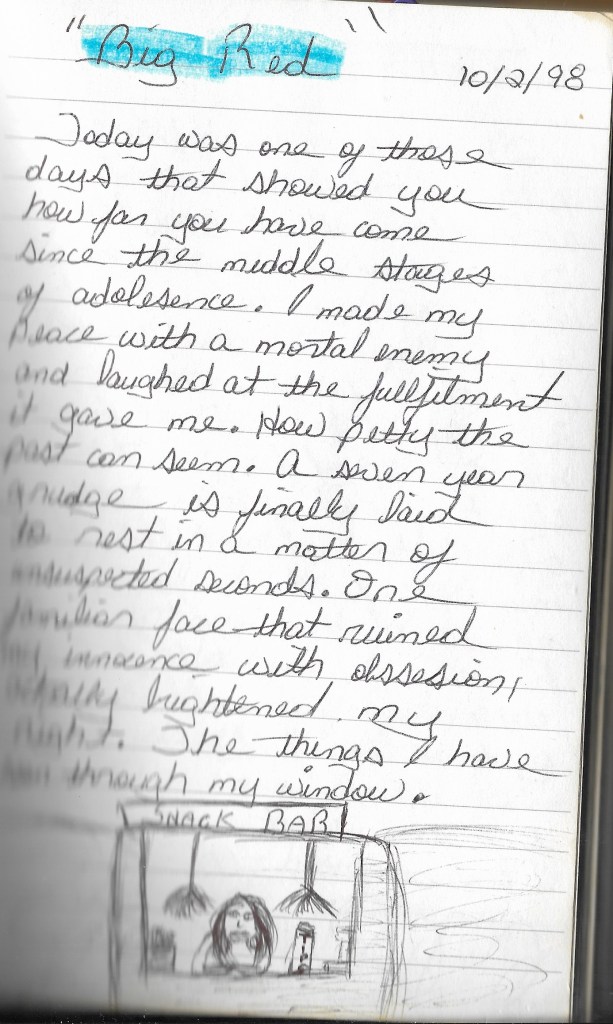 "Big Red"
10/2/98
Today was one of those
days that showed you
how far you have come
since the middle stages
of adolesence. I made my
peace with a mortal enemy
and laughed at the fullfilment
it gave me. How petty the
past can seem. A seven year
grudge is finally laid
to rest in a matter of
unsuspected seconds. One
familiar face that ruined
my innocence with obssesion,
brightened my
night. The things I have
through my window.
SNACK BAR